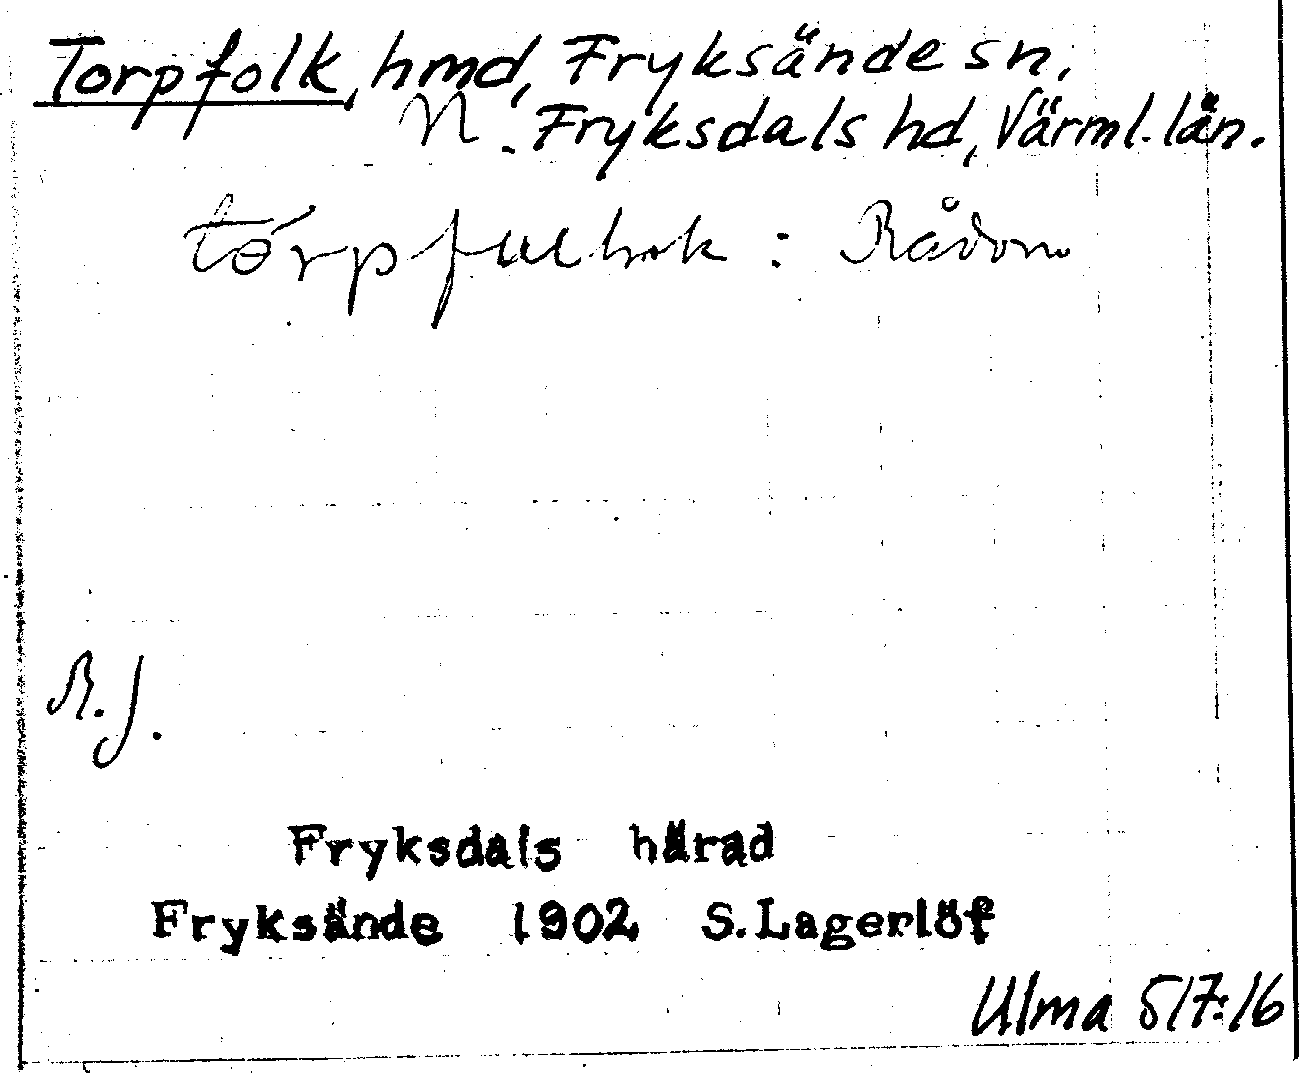 Torpfolk, hmd, Fryksände sn,
N. Fryksdals hd, Värml. län.
: Rådom
R.J.
Fryksdals härad
Fryksände 1902 S. Lagerlöf
Ulma 517:16